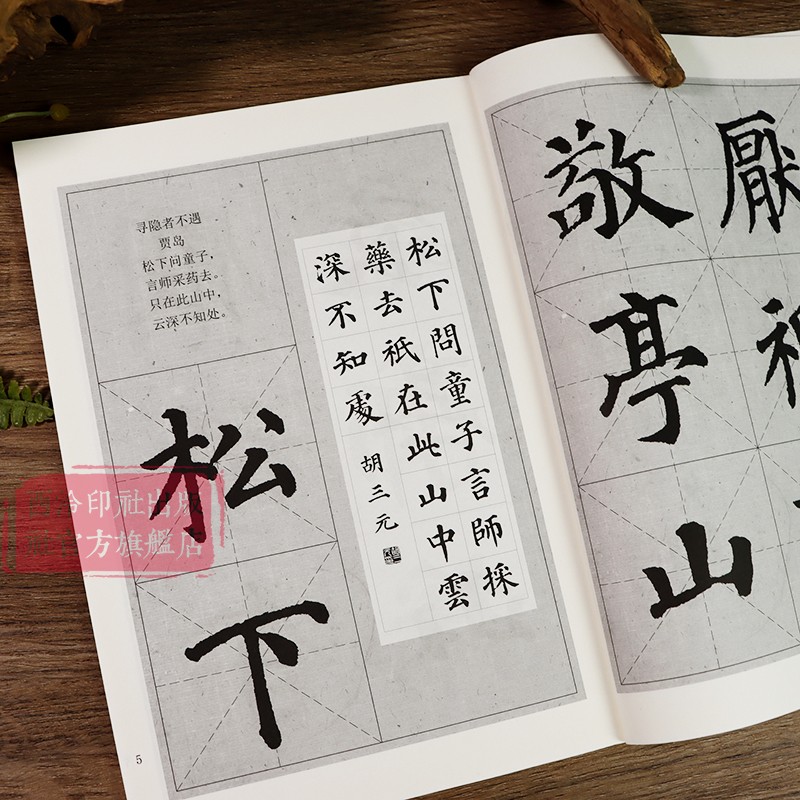 寻隐者不遇
贾岛
松下问童子，
言师采药去。
只在此山中，
云深不知处。
松下問童子言師採
藥去祇在此山中雲
深不知處
胡三元
松
下
5
敬
亭
山
厭
祇
西泠印社出版社
官方旗艦店